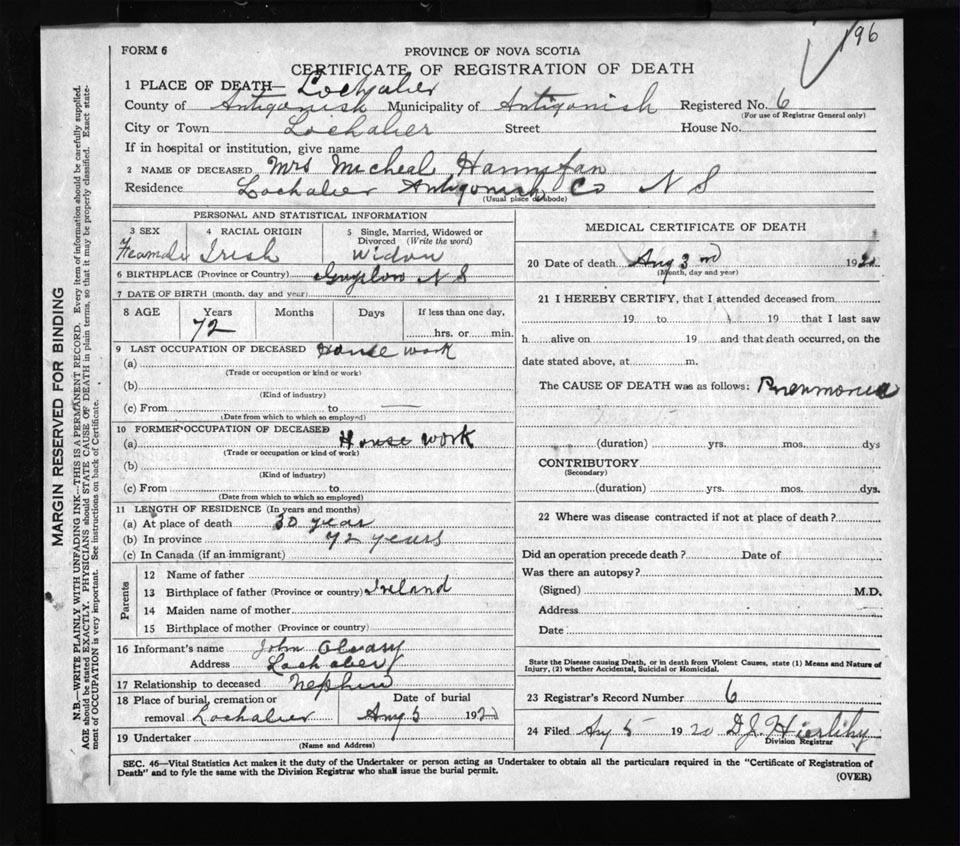 196
FORM 6
PROVINCE OF NOVA SCOTIA
CERTIFICATE OF REGISTRATION OF DEATH
1 PLACE OF DEATH— Lochaber
County of Antigonish Municipality of Antigonish Registered No. 6
(For use of Registrar General only)
City or Town Lochaber Street House No.
If in hospital or institution, give name
2 NAME OF DECEASED Mrs Micheal Hannifan
Residence Lochaber Antigonish Co N S
(Usual place of abode)
PERSONAL AND STATISTICAL INFORMATION
3 SEX 4 RACIAL ORIGIN 5 Single, Married, Widowed or Divorced (Write the word)
Feamale Irish Widow
6 BIRTHPLACE (Province or Country) N S
7 DATE OF BIRTH (month, day and year)
8 AGE Years Months Days If less than one day,
72 hrs. or min.
9 LAST OCCUPATION OF DECEASED House work
(a)
(Trade or occupation or kind or work)
(b)
(Kind of industry)
(c) From to —
(Date from which to which so employed)
10 FORMER OCCUPATION OF DECEASED
(a) House work
(Trade or occupation or kind of work)
(b)
(Kind of industry)
(c) From to
(Date from which to which so employed)
11 LENGTH OF RESIDENCE (In years and months)
(a) At place of death 30 year
(b) In province 72 years
(c) In Canada (if an immigrant)
Parents
12 Name of father
13 Birthplace of father (Province or country) Ireland
14 Maiden name of mother
15 Birthplace of mother (Province or country)
16 Informant's name John
Address Lochaber
17 Relationship to deceased Nephew
18 Place of burial, cremation or removal Lochaber
Date of burial
Aug 5 1920
19 Undertaker
(Name and Address)
MEDICAL CERTIFICATE OF DEATH
20 Date of death Aug 3rd 1920
(Month, day and year)
21 I HEREBY CERTIFY, that I attended deceased from
19 to 19 that I last saw
h alive on 19 and that death occurred, on the
date stated above, at m.
The CAUSE OF DEATH was as follows: Pneumonia
(duration) yrs. mos. dys
CONTRIBUTORY
(Secondary)
(duration) yrs. mos. dys.
22 Where was disease contracted if not at place of death?
Did an operation precede death? Date of
Was there an autopsy?
(Signed) M.D.
Address
Date
State the Disease causing Death, or in death from Violent Causes, state (1) Means and Nature of
Injury, (2) whether Accidental, Suicidal or Homicidal.
23 Registrar's Record Number 6
24 Filed Aug 5 1920 D J Hierlihy
Division Registrar
SEC. 46—Vital Statistics Act makes it the duty of the Undertaker or person acting as Undertaker to obtain all the particulars required in the "Certificate of Registration of
Death" and to fyle the same with the Division Registrar who shall issue the burial permit.
(OVER)
MARGIN RESERVED FOR BINDING
N.B.—WRITE PLAINLY WITH UNFADING INK—THIS IS A PERMANENT RECORD. Every item of information should be carefully supplied.
AGE should be stated EXACTLY. PHYSICIANS should STATE CAUSE OF DEATH in plain terms, so that it may be properly classified. Exact state-
ment of OCCUPATION is very important. See instructions on back of Certificate.